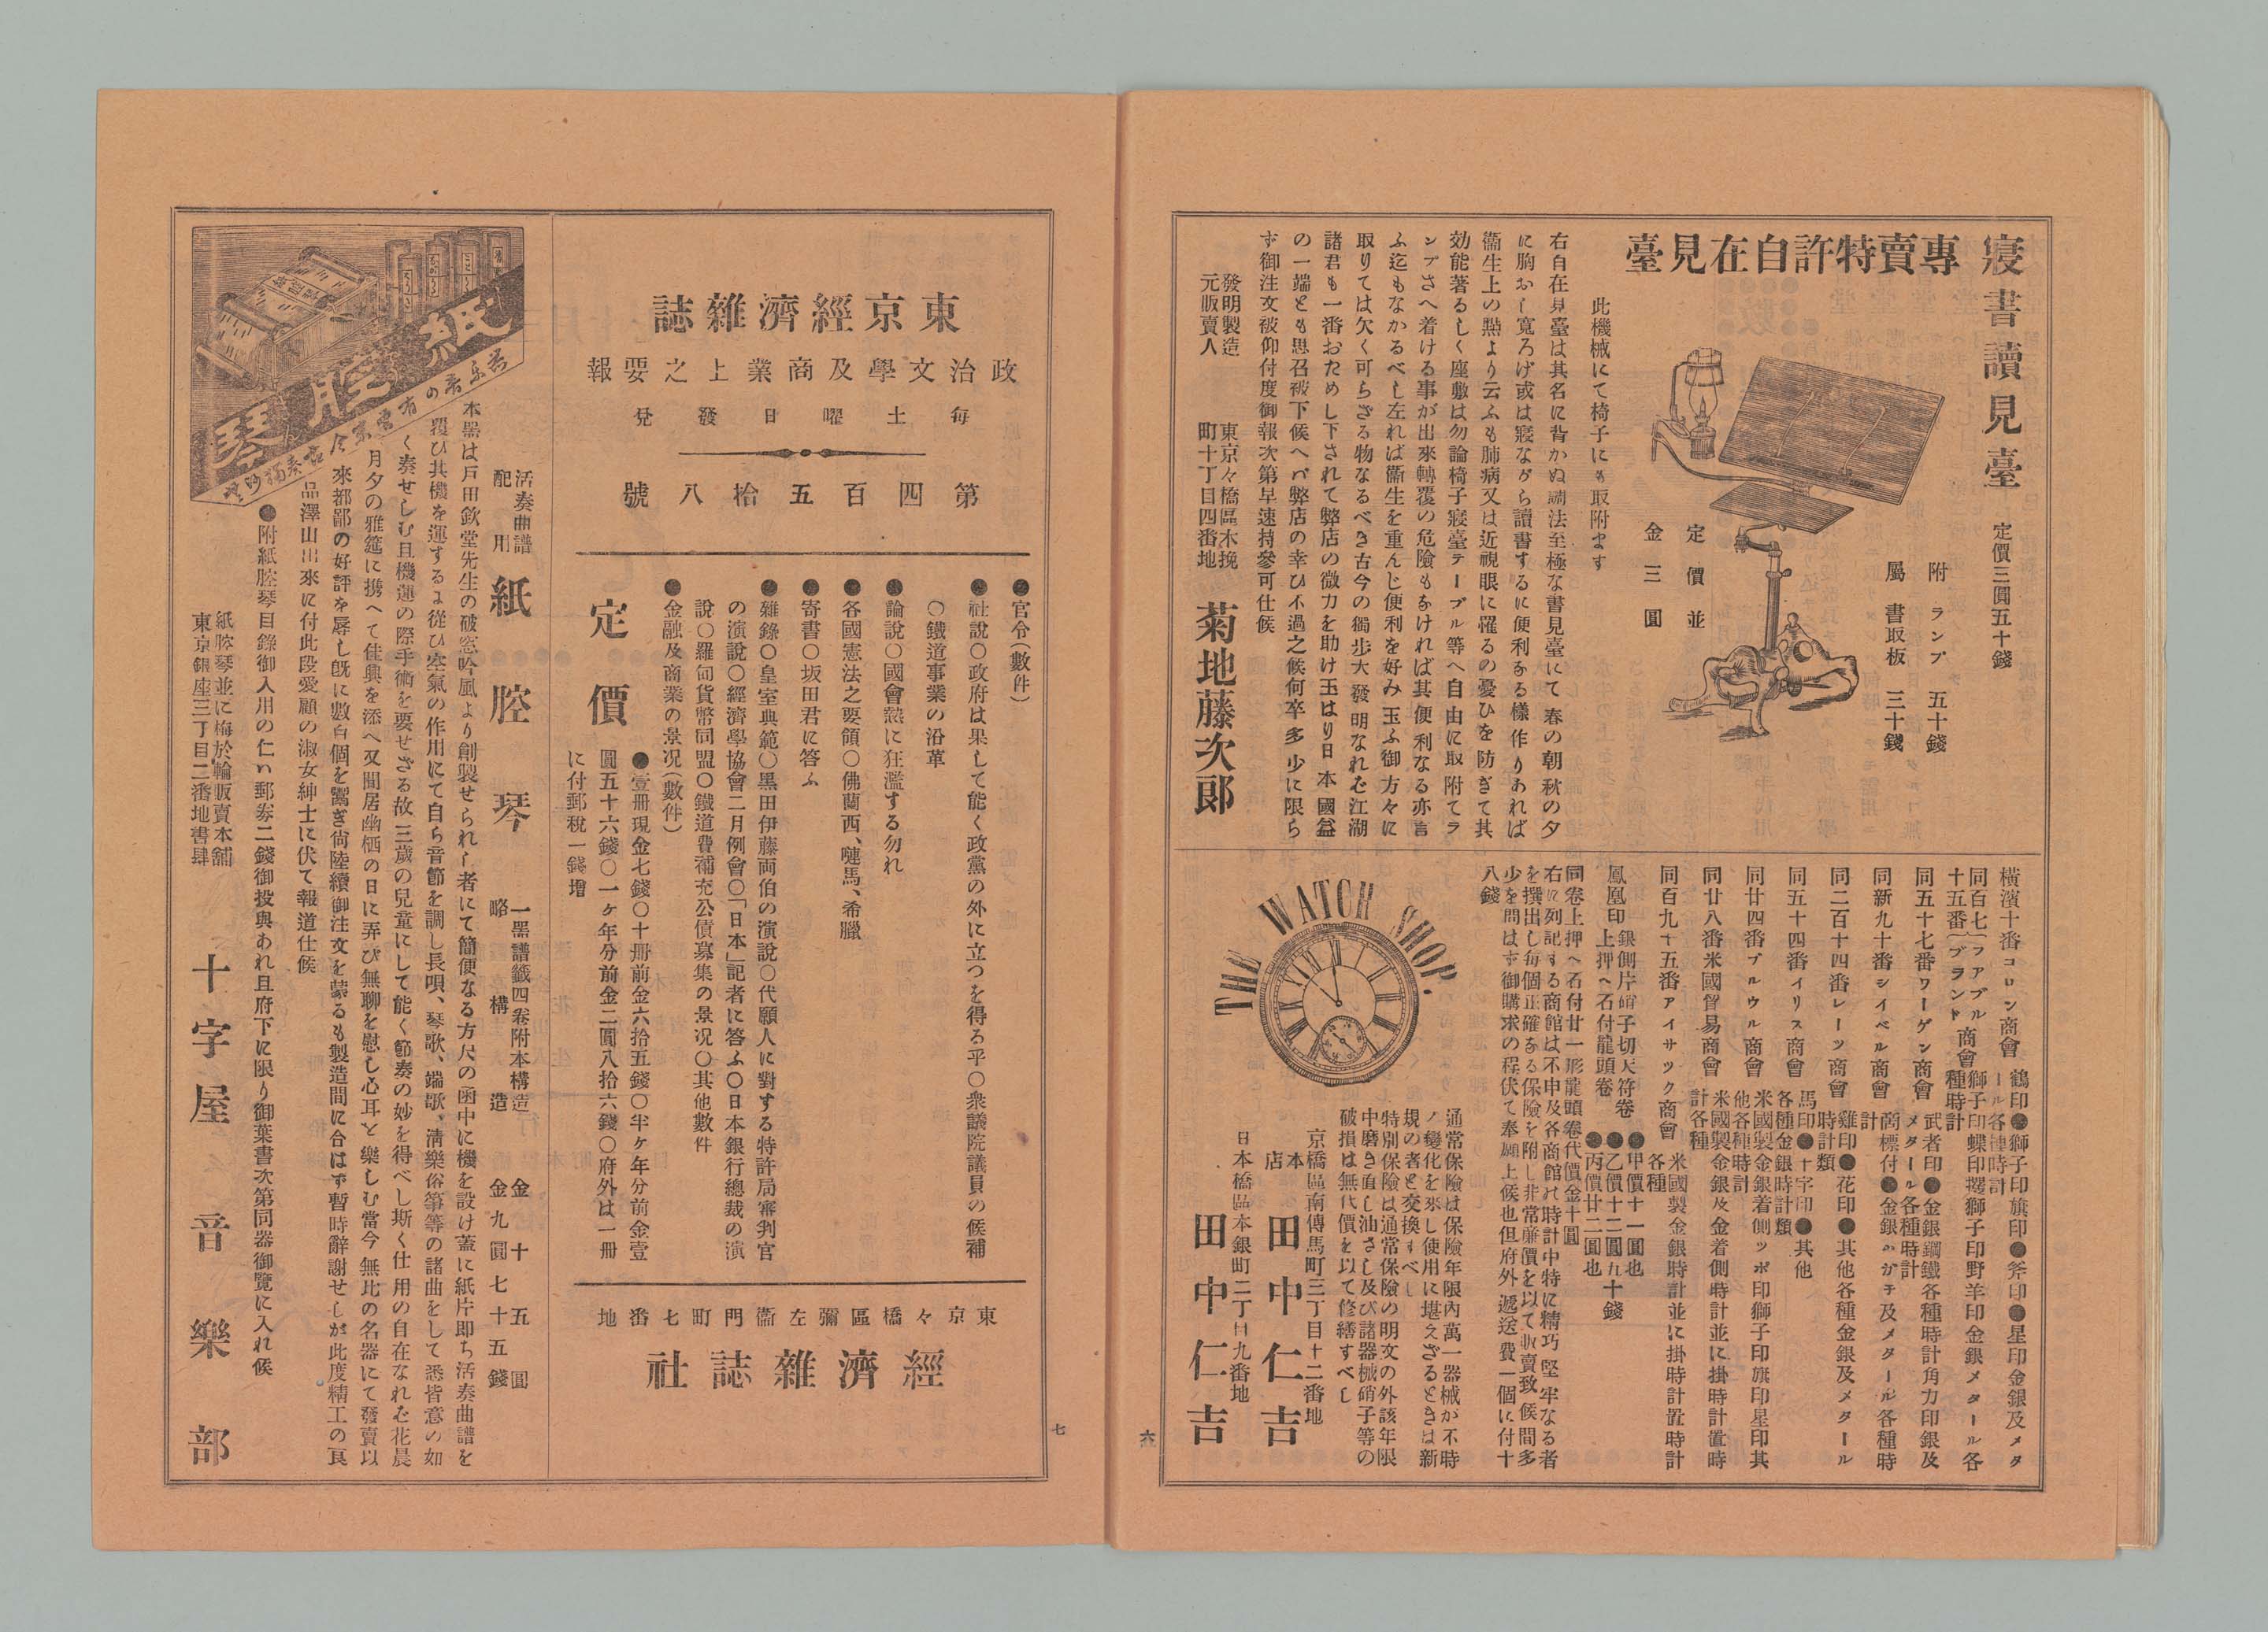 寢書讀見臺
定價三圓五十錢
專賣特許自在見臺
附屬
ランプ 五十錢
書取板 三十錢
定價並
金三圓
此機械にて椅子にも取附ます
右自在見臺は其名に背かぬ調法至極な書見臺にて春の朝秋の夕
に胸おし寛ろげ或は寢ながら讀書するに便利なる樣作りあれば
衞生上の點より云ふも肺病又は近視眼に罹るの憂ひを防ぎて其
効能著るしく座敷は勿論椅子寢臺テーブル等へ自由に取附てラ
ンプさへ着ける事が出來轉覆の危險もなければ其便利なる亦言
ふ迄もなかるべし左れば衞生を重んじ便利を好み玉ふ御方々に
取りては欠く可らざる物なるべき古今の獨歩大發明なれむ江湖
諸君も一番おためし下されて弊店の微力を助け玉はり日本國益
の一端とも思召被下候へバ弊店の幸ひ不過之候何卒多少に限ら
ず御注文被仰付度御報次第早速持參可仕候
發明製造
元販賣人
東京々橋區木挽
町十丁目四番地
菊地藤次郎
橫濱十番コロン商會 鶴印●獅子印旗印●斧印●星印金銀及メタール各種時計
同百七十五番(ファブルブラント)商會 獅子印蝶印擇獅子印野羊印金銀メタール各種時計
同五十七番ワーゲン商會 武者印●金銀鋼鐵各種時計角力印銀及メタール各種時計
同新九十番シイベル商會 商標付●金銀及メタール各種時計
同二百十四番レーツ商會 雞印●花印●其他各種金銀及メタール時計類
同五十四番イリス商會 馬印●十字印●其他各種金銀時計類
同廿四番ブルウル商會 米國製金銀着側ツボ印獅子印旗印星印其他各種時計
同廿八番米國貿易商會 米國製金銀及金着側時計並に掛時計置時計各種
同百九十五番アイサック商會 米國製金銀時計並に掛時計置時計各種
鳳凰印 銀側片硝子切天符卷 ●甲價十一圓也
上押へ石付龍頭卷 ●乙價十二圓九十錢
●丙價廿二圓也
同卷上押へ石付廿一形龍頭卷代價金十圓
右に列記する商館は不申及各商館の時計中特に精巧堅牢なる者
を撰出し每個正確なる保險を附し非常廉價を以て販賣致候間多
少を問はず御購求の程伏て奉願上候也但府外遞送費一個に付十
八錢
THE WATCH SHOP.
通常保險は保險年限內萬一器械が不時
ノ變化を來し使用に堪えざるときは新
規の者と交換すべし
特別保險は通常保險の明文の外該年限
中磨き直し油さし及び諸器械硝子等の
破損は無代價を以て修繕すべし
京橋區南傳馬町三丁目十二番地
本店 田中仁吉
日本橋區本銀町二丁目九番地
田中仁吉
六
七
東京經濟雜誌
政治文學及商業上之要報
每土曜日發兌
第四百五拾八號
●官令(數件)
●社說○政府は果して能く政黨の外に立つを得る乎○衆議院議員の候補
○鐵道事業の沿革
●論說○國會熱に狂濫する勿れ
●各國憲法之要領○佛蘭西、嗹馬、希臘
●寄書○坂田君に答ふ
●雜錄○皇室典範○黑田伊藤両伯の演說○代願人に對する特許局審判官
の演說○經濟學協會二月例會○「日本」記者に答ふ○日本銀行總裁の演
說○羅甸貨幣同盟○鐵道費補充公債募集の景況○其他數件
●金融及商業の景况(數件)
定價
●壹冊現金七錢○十冊前金六拾五錢○半ケ年分前金壹
圓五十六錢○一ケ年分前金二圓八拾六錢○府外は一冊
に付郵稅一錢增
東京々橋區彌左衞門町七番地
經濟雜誌社
紙腔琴
活奏曲譜
配用
紙腔琴
一黑譜籤四卷附本構造 金十五圓
略構造 金九圓七十五錢
本器は戸田欽堂先生の破窓吟風より創製せられし者にて簡便なる方尺の凾中に機を設け蓋に紙片卽ち活奏曲譜を
覆ひ其機を運するに從ひ空氣の作用にて自ら音節を調し長唄、琴歌、端歌、淸樂俗箏等の諸曲をして悉皆意の如
く奏せしむ且機運の際手術を要せざる故三歲の兒童にして能く節奏の妙を得べし斯く仕用の自在なれむ花晨
月夕の雅筵に携へて佳興を添へ又閒居幽栖の日に弄び無聊を慰し心耳と樂しむ當今無比の名器にて發賣以
來都鄙の好評を辱し旣に數百個を鬻ぎ尙陸續御注文を蒙るも製造間に合はず暫時辭謝せしが此度精工の良
品澤山出來に付此段愛顧の淑女紳士に伏て報道仕候
●附紙腔琴目錄御入用の仁ハ郵券二錢御投與あれ且府下に限り御葉書次第同器御覽に入れ候
紙腔琴並に梅於輪販賣本舖
東京銀座三丁目二番地書肆
十字屋音樂部